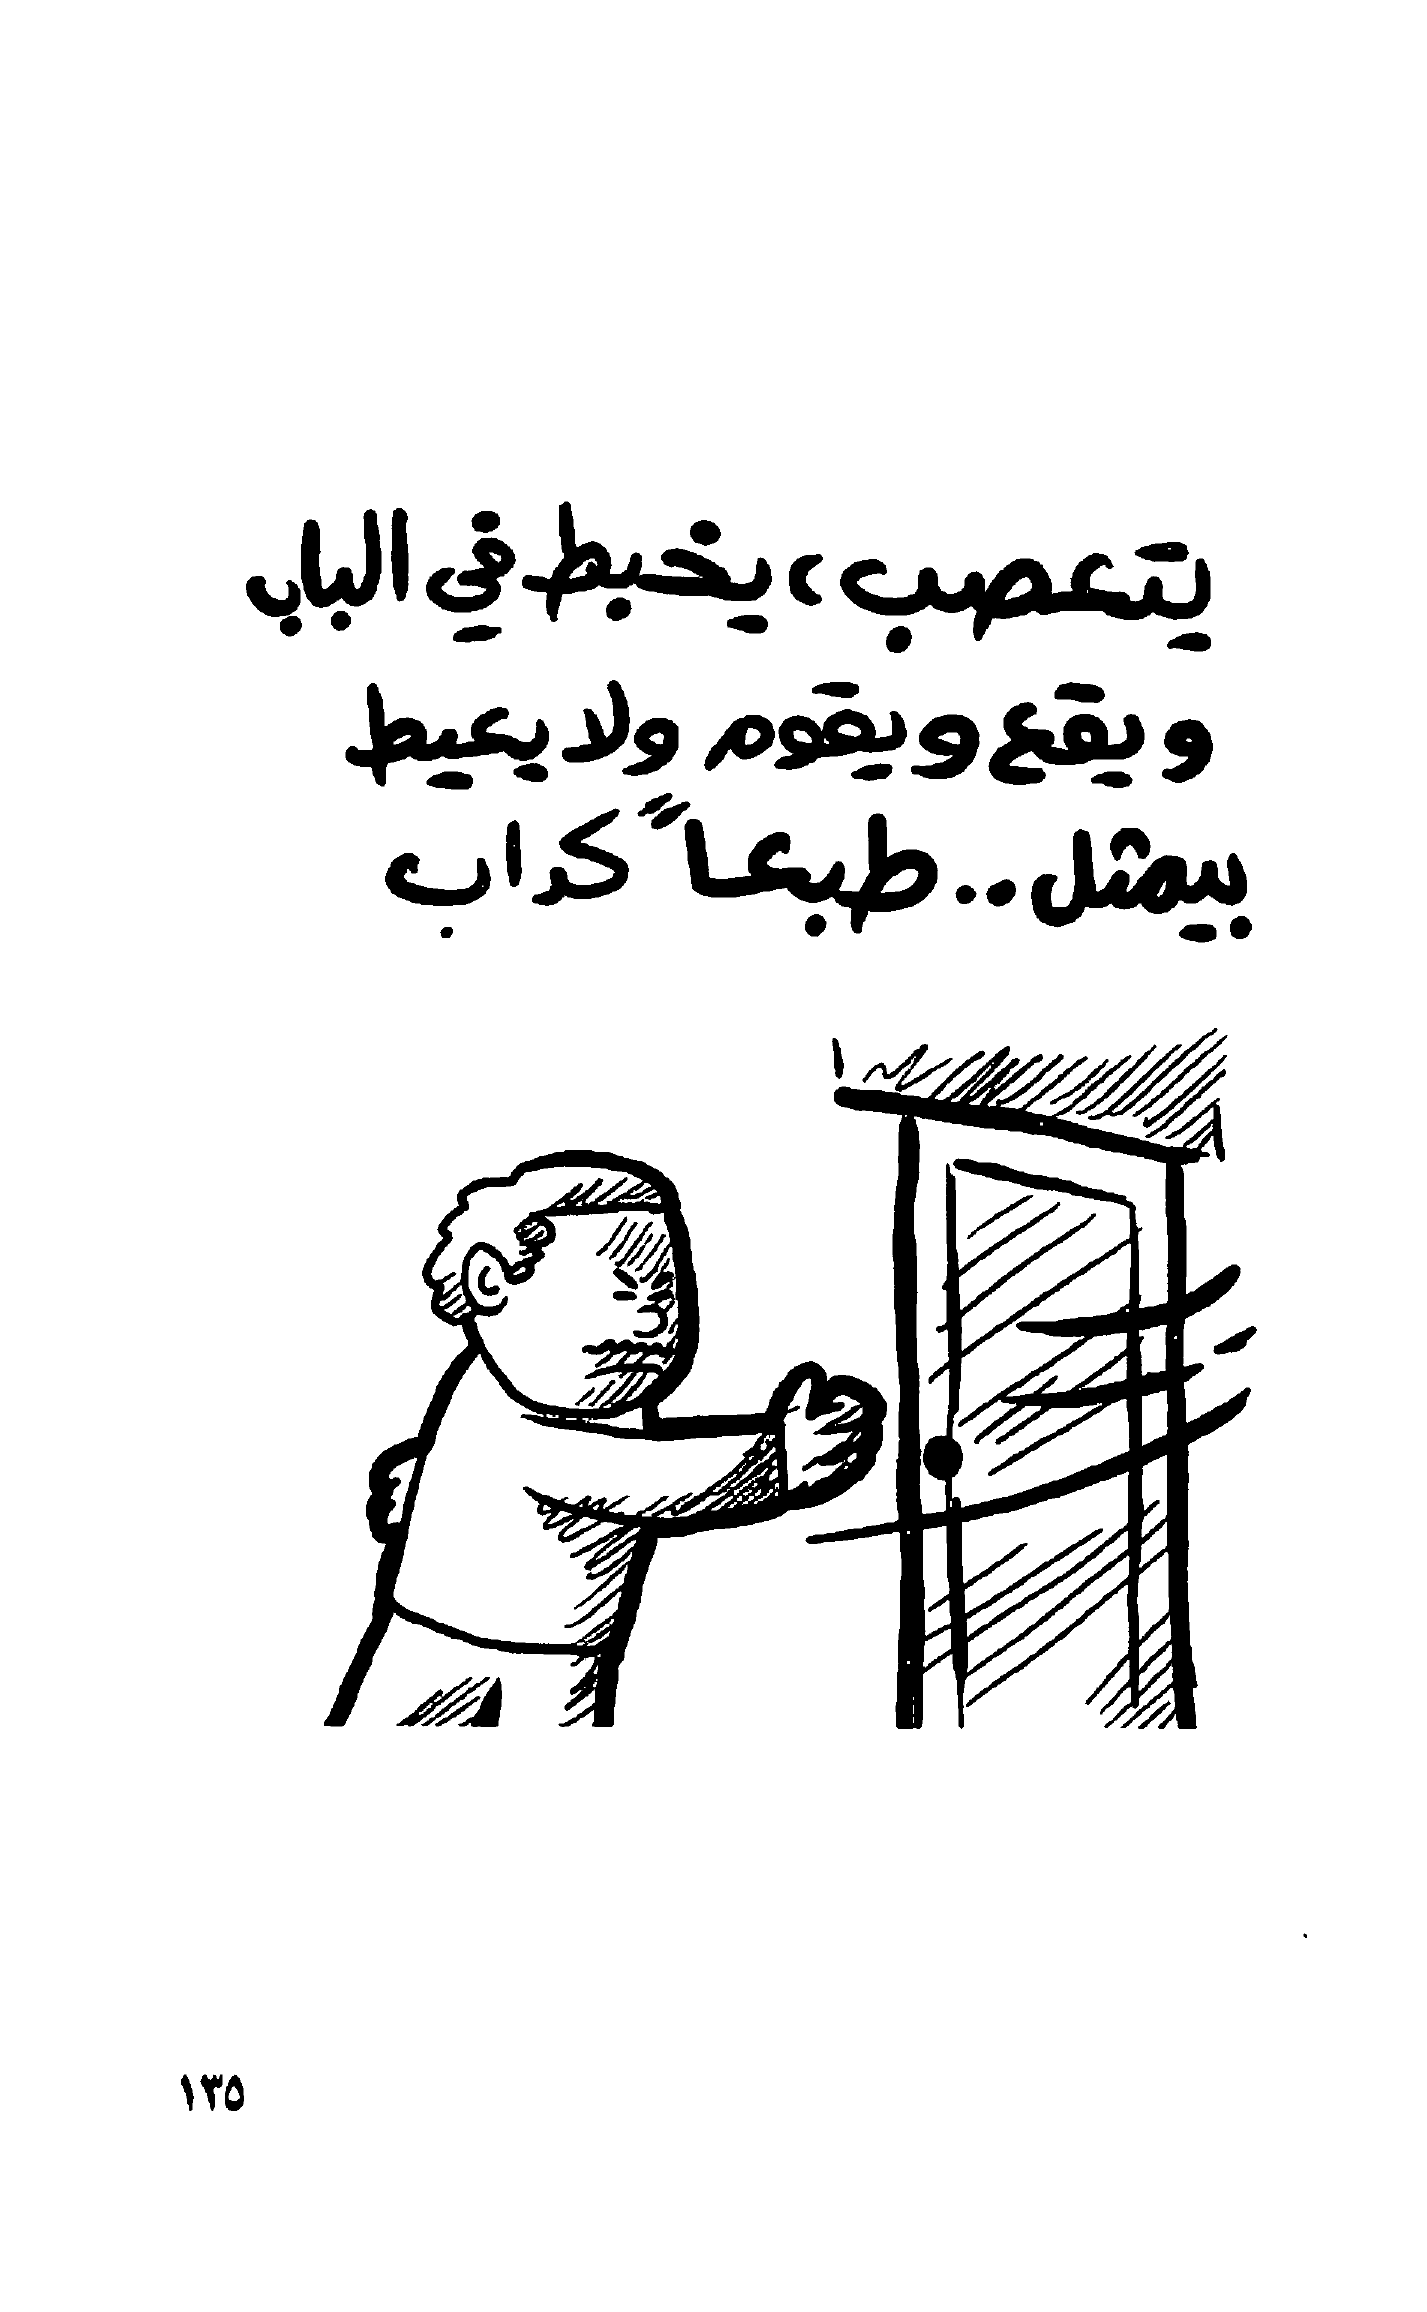 يتعصب، يخبط في الباب
ويقع ويقوم ولا يعيط
بيمثل.. طبعاً كداب
١٣٥